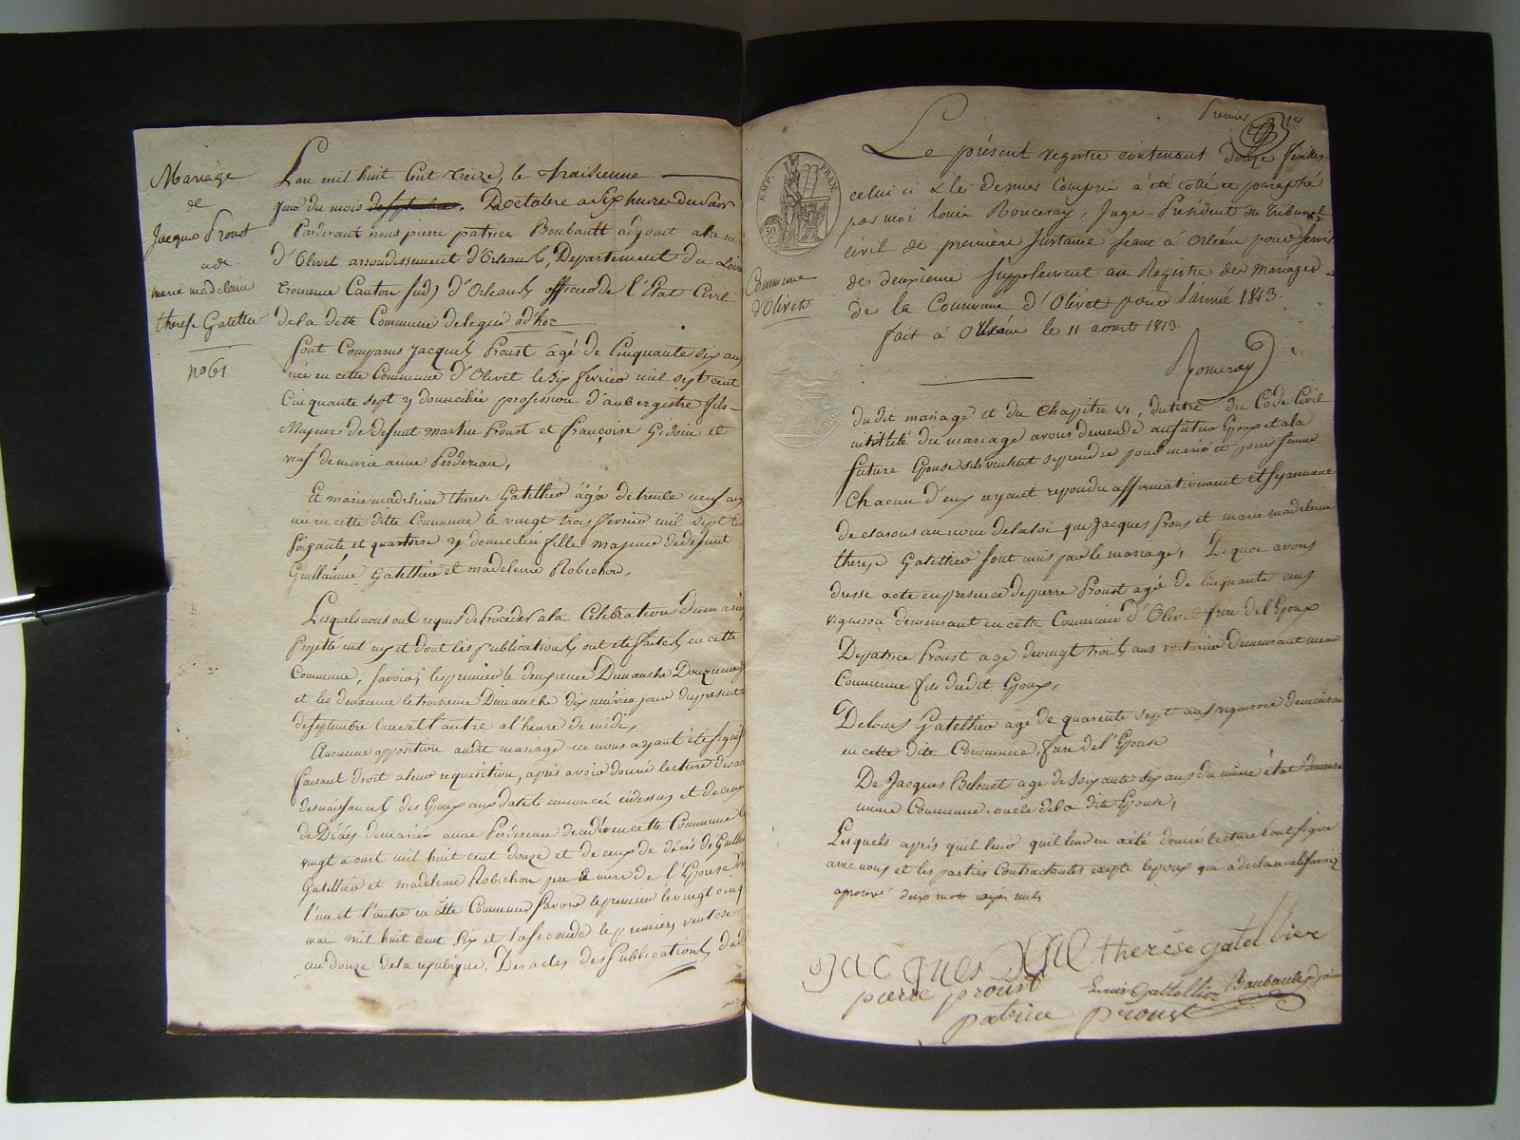 Mariage
de
Jacques Proust
et de
marie madelaine
therese Gatellier
no 61
L'an mil huit Cent treize, le traisieme
jour du mois de septembre. D'octobre a Six heures du Soir
Pardevant nous pierre patrice Boubault adjoint a la
d'Olivet arrondissement d'Orleans, Departement du Loiret
Canton Sud d'Orleans officier de l'Etat Civil
de la ditte Commune delegué ad'hoc
Sont Comparus Jacques Proust agé de Cinquante six ans
née en cette Commune d'Olivet le Six fevrier mil sept cent
Cinquante sept y domicilié profession d'aubergiste fils
Majeur de defunt Proust et françoise et
veuf de marie anne Perdereau,
Et marie madelaine therese Gatellier agée de trente neuf ans
née en cette ditte Commune le vingt trois fevrier mil Sept Cent
Soixante et quatorze y domiciliée fille Majeure de defunt
Guillaume Gatellier et madeleine Robichon,
Lesquels nous ont requis de Proceder a la Celebration du mariage
Projetté entre eux et dont les publications ont eté faites en cette
Commune, Savoir; la premiere le Dimanche Douzieme
et la deuxieme le troisieme Dimanche dix neuvieme jour du present
de Septembre l'une et l'autre a l'heure de midi,
Aucunne opposition audit mariage ne nous ayant eté Signifiée
faisant droit a leur requisition, après avoir donné lecture des actes
de naissances des Epoux aux dates enoncées cidessus et de ceux
de Décés de marie anne Perdereau Decedée en cette Commune le
vingt aoust mil huit cent douze et de ceux de décés de Guillaume
Gatellier et madeleine Robichon pere & mere de l'Epouse
l'un et l'autre en cette Commune Savoir le premier le vingt cinq
mai mil huit cent Six et la Seconde le premier ventose
an douze de la republique. Des actes des Publications du
Premier
EMP. FRAN.
Commune
d'Olivet
Le présent registre contenant douze feuilles
celui ci & le dernier compris a été cotté et paraphé
par moi louis Ronceray, Juge-Président du Tribunal
civil de première Instance séant à Orléans pour servir
de deuxieme Supplement au Registre des Mariages
de la Commune d'Olivet pour l'année 1813.
fait à Orléans le 11 aoust 1813.
Ronceray
dudit mariage et du Chapitre VI, du titre du Code Civil
intitulé du mariage avons demendé au futur Epoux et a la
future Epouse s'ils veulent se prendre pour mari et pour femme
Chacun d'eux ayant repondu affirmativement et Separement
declarons au nom de la loi que Jacques Proust et marie madeleine
therese Gatellier sont unis par le mariage, De quoi avons
dressé acte en presence de pierre Proust agé de Cinquante ans
vigneron demeurant en cette Commune d'Olivet frere de l'Epoux
De patrice Proust agé de vingt trois ans demeurant meme
Commune fils dudit Epoux,
De louis Gatellier agé de quarente sept ans vigneron demeurant
en cette dite Commune, frere de l'Epouse
De Jacques agé de Soixante Six ans du même état
meme Commune oncle de la dite Epouse,
Lesquels après qu'il leur qu'il leur en a eté donné lecture l'ont signé
avec nous et les parties Contractantes
aprouvé deux mots nuls
JACQUES PROUST M therese gatellier
pierre proust Louis Gatellier Boubault adj
patrice proust